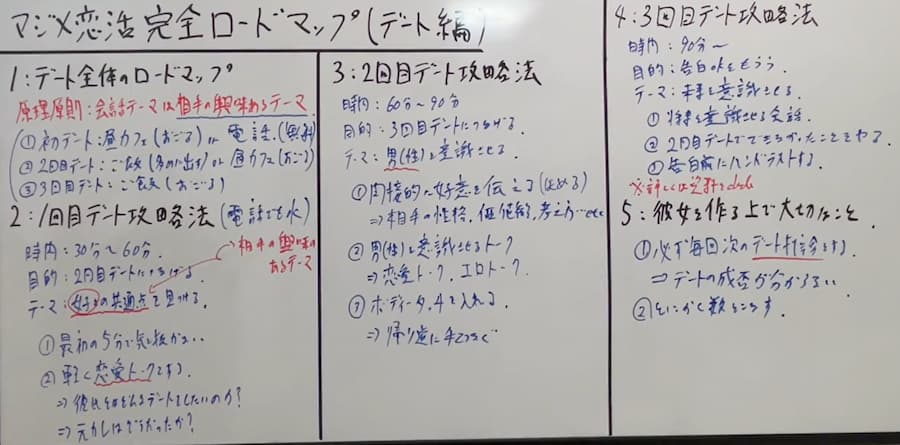 マジメ恋活完全ロードマップ(デート編)
1:デート全体のロードマップ
原理原則:会話テーマは相手の興味あるテーマ
①初デート:昼カフェ(おごる) or 電話(無料)
②2回目デート:ご飯(多めに出す) or 昼カフェ(おごる)
③3回目デート:ご飯(おごる)
2:1回目デート攻略法(電話でも可)
時間:30分〜60分
相手の興味のあるテーマ
目的:2回目デートにつなげる
テーマ:女子との共通点を見つける
①最初の5分で気を抜かない
②軽く恋愛トークをする
⇒彼氏とどんなデートをしたいのか?
⇒元カレはどうだったか?
3:2回目デート攻略法
時間:60分〜90分
目的:3回目デートにつなげる
テーマ:男(性)を意識させる
①間接的に好意を伝える(ほめる)
⇒相手の性格、価値観、考え方…etc
②男(性)を意識させるトーク
⇒恋愛トーク、エロトーク
③ボディタッチを入れる
⇒帰り道に手つなぐ
4:3回目デート攻略法
時間:90分〜
目的:告白OKをもらう
テーマ:未来を意識させる
①将来を意識させる会話
②2回目デートでできなかったことをやる
③告白前にハンドテストする
※詳しくは
5:彼女を作る上で大切なこと
①必ず毎回次のデート打診をする
⇒デートの成否が分からない
②とにかく数をこなす